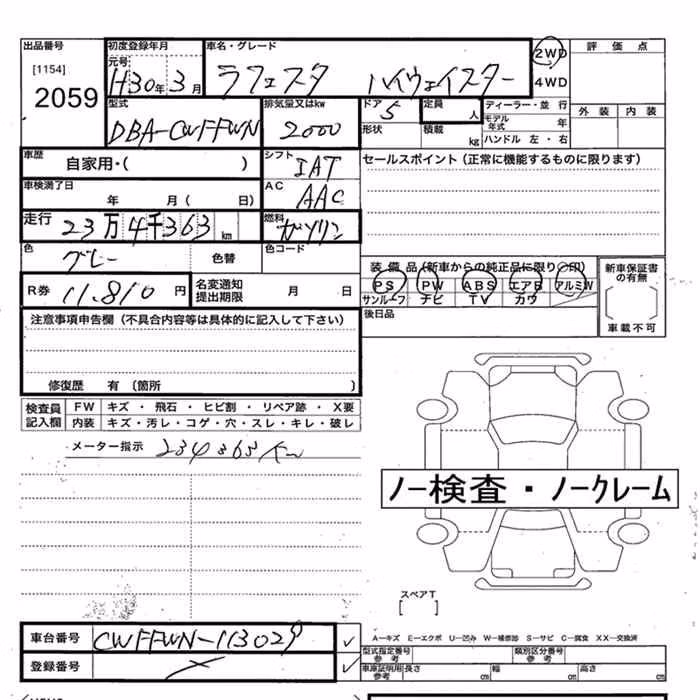 出品番号 初度登録年月 車名・グレード 2WD 評価点
[1154] 元号 H30年3月 ラフェスタ ハイウェイスター 4WD
2059 型式 排気量又はkw ドア 5 定員 人 ディーラー・並行 外装 内装
DBA-CWFFWN 2000 形状 積載 kg モデル年式 年
ハンドル 左・右
車歴 自家用・( ) シフト IAT セールスポイント(正常に機能するものに限ります)
車検満了日 年 月( 日) AC AAC
走行 23万4千363km 燃料 ガソリン
色 グレー 色替 色コード
装備品(新車からの純正品に限り○印) 新車保証書の有無
R券 11,810円 名変通知提出期限 月 日 PS PW ABS エアB アルミW
サンルーフ ナビ TV カワ
注意事項申告欄(不具合内容等は具体的に記入して下さい) 後日品 車載不可
修復歴 有(箇所 )
検査員記入欄 FW キズ・飛石・ヒビ割・リペア跡・X要
内装 キズ・汚レ・コゲ・穴・スレ・キレ・破レ
メーター指示 234363km
ノー検査・ノークレーム
スペアT
[ ]
車台番号 CWFFWN-113029 ✓
A-キズ E-エクボ U-凹み W-補修跡 S-サビ C-腐食 XX-交換済
登録番号 ✓ 型式指定番号 参考 類別区分番号 参考
車庫証明用 参考 長さ cm 幅 cm 高さ cm